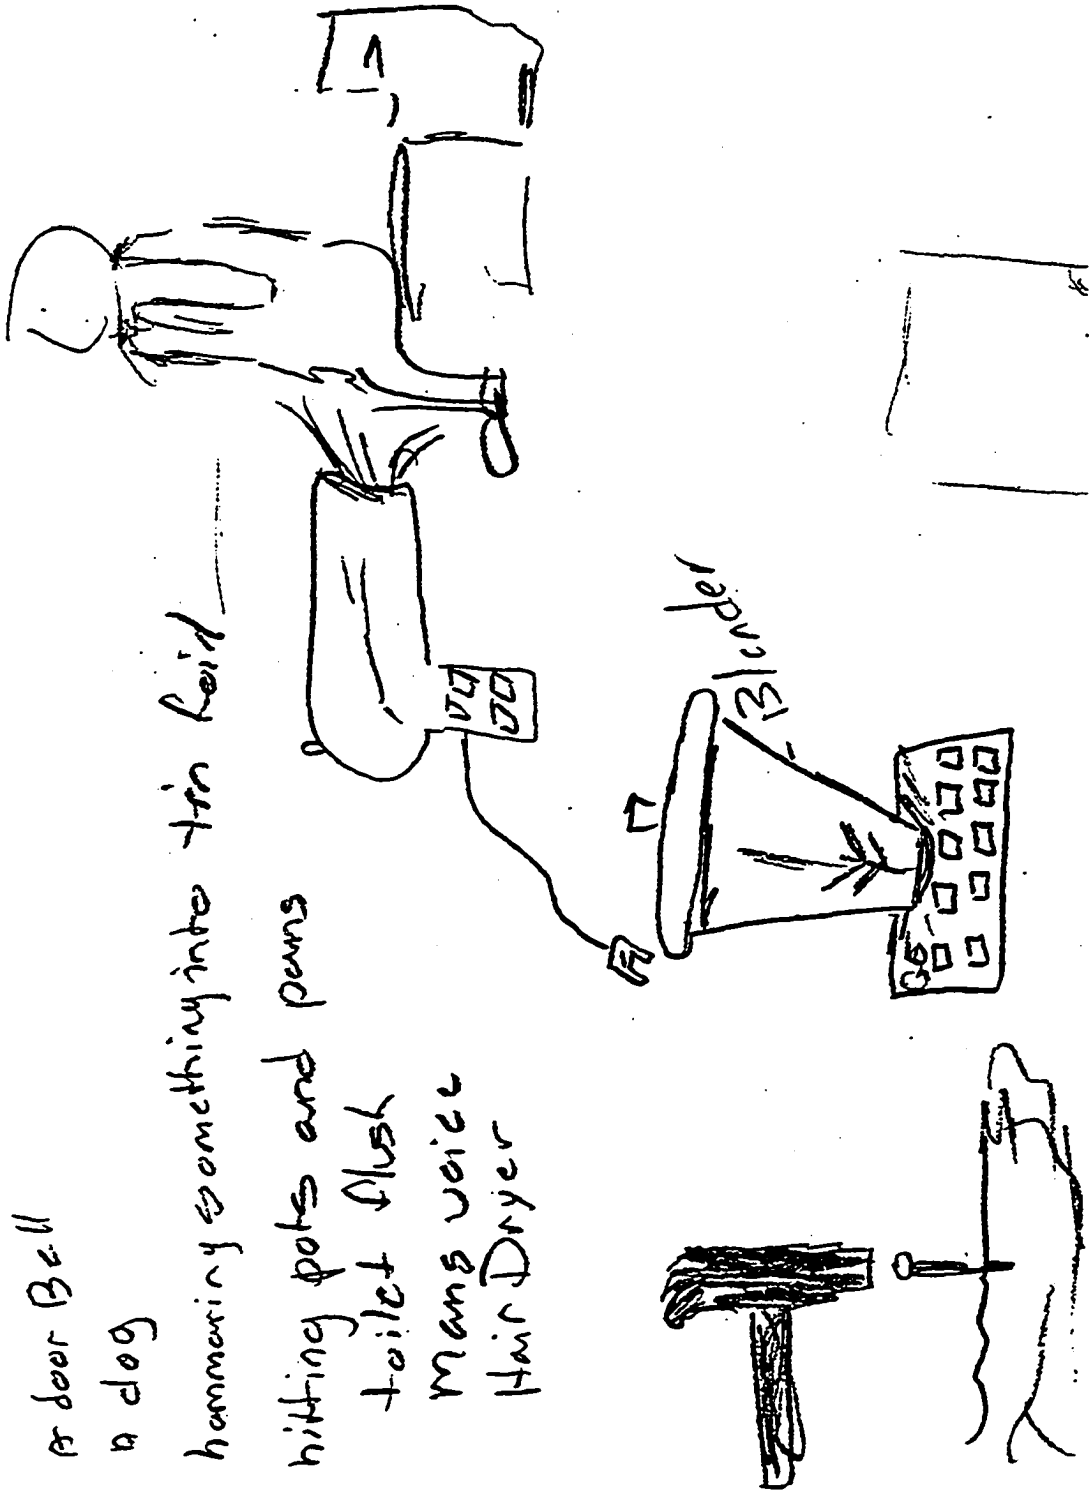 A door Bell
A dog
hammaring something into tin foil
hitting pots and pans
toilet flush
Mans voice
Hair Dryer
Blender